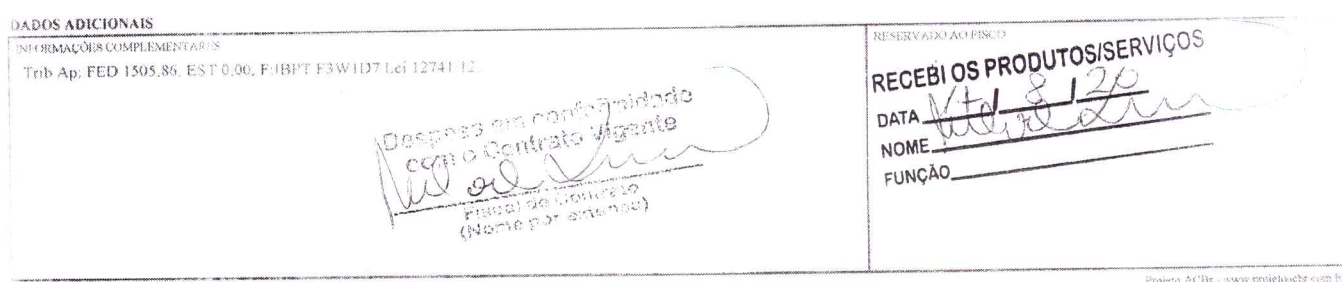 DADOS ADICIONAIS
INFORMAÇÕES COMPLEMENTARES
Trib Ap: FED 1505,86, EST 0,00, F:IBPT F3W1D7 Lei 12741/12.
Despesa em conformidade
com o Contrato Vigente
Fiscal de Contrato
(Nome por extenso)
RESERVADO AO FISCO
RECEBI OS PRODUTOS/SERVIÇOS
DATA / 8 / 20
NOME
FUNÇÃO
Projeto ACBr - www.projetoacbr.com.b